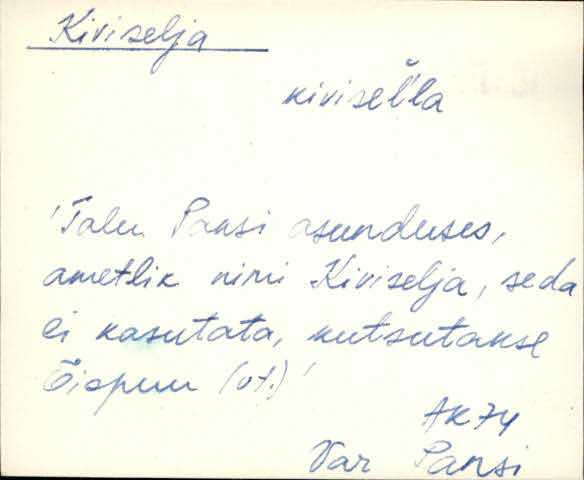 Kiviselja
kivisel'l'a
'Talu Pansi asunduses,
ametlik nimi Kiviselja, seda
ei kasutata, kutsutakse
Õiepuu (vt.)'
AK74
Var Pansi